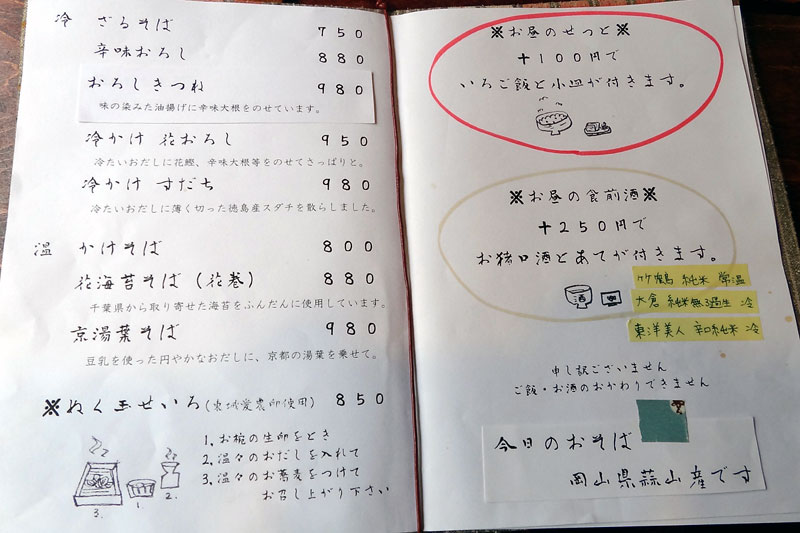 冷 ざるそば 750
辛味おろし 880
おろしきつね 980
味の染みた油揚げに辛味大根をのせています。
冷かけ 花おろし 950
冷たいおだしに花鰹、辛味大根等をのせてさっぱりと。
冷かけ すだち 980
冷たいおだしに薄く切った徳島産スダチを散らしました。
温 かけそば 800
花海苔そば(花巻) 880
千葉県から取り寄せた海苔をふんだんに使用しています。
京湯葉そば 980
豆乳を使った円やかなおだしに、京都の湯葉を乗せて。
※ぬく玉せいろ(東城愛農卵使用) 850
1.お椀の生卵をとき
2.温々のおだしを入れて
3.温々のお蕎麦をつけて
お召し上がり下さい
3. 1. 2.
※お昼のせっと※
+100円で
いろご飯と小皿が付きます。
※お昼の食前酒※
+250円で
お猪口酒とあてが付きます。
酒
竹鶴 純米 常温
大倉 純米無濾過生 冷
東洋美人 辛口純米 冷
申し訳ございません
ご飯・お酒のおかわりできません
今日のおそば
岡山県蒜山産です